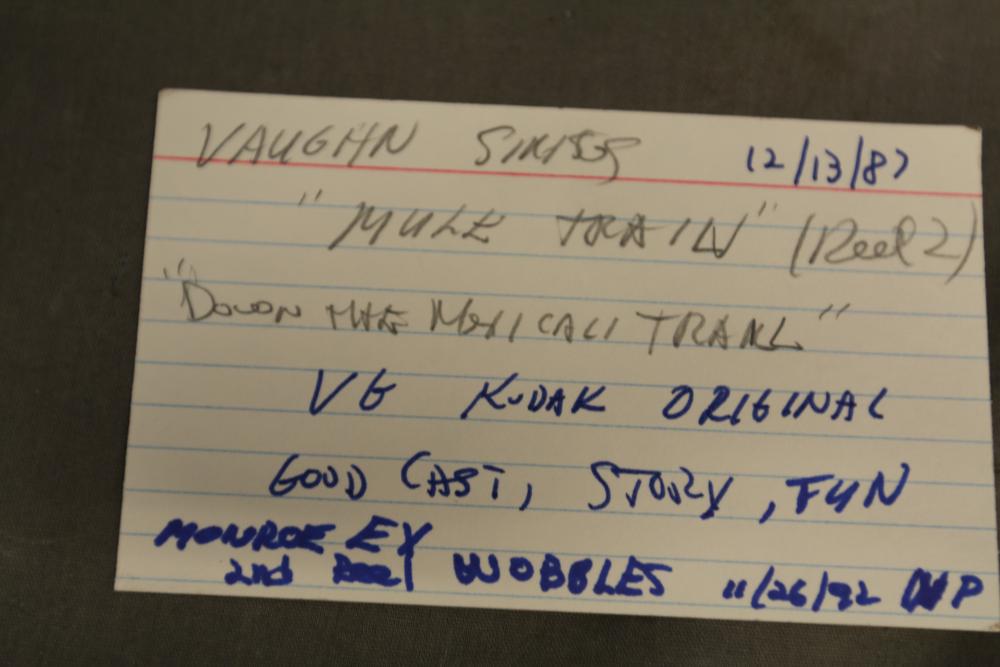 VAUGHN 12/13/87
"MULE TRAIN" (Reel 2)
"DOWN THE MEXICALI TRAIL"
VG KODAK ORIGINAL
GOOD CAST, STORY, FUN
MONROE EX
2nd Reel WOBBLES 11/26/92